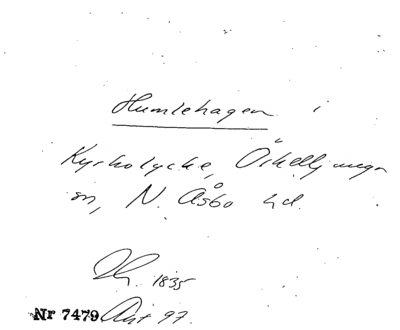 Humlehagen i
Kyrkolycke, Örkelljunga
sn, N. Åsbo hd.
1835
Nr 7479 Akt 97.